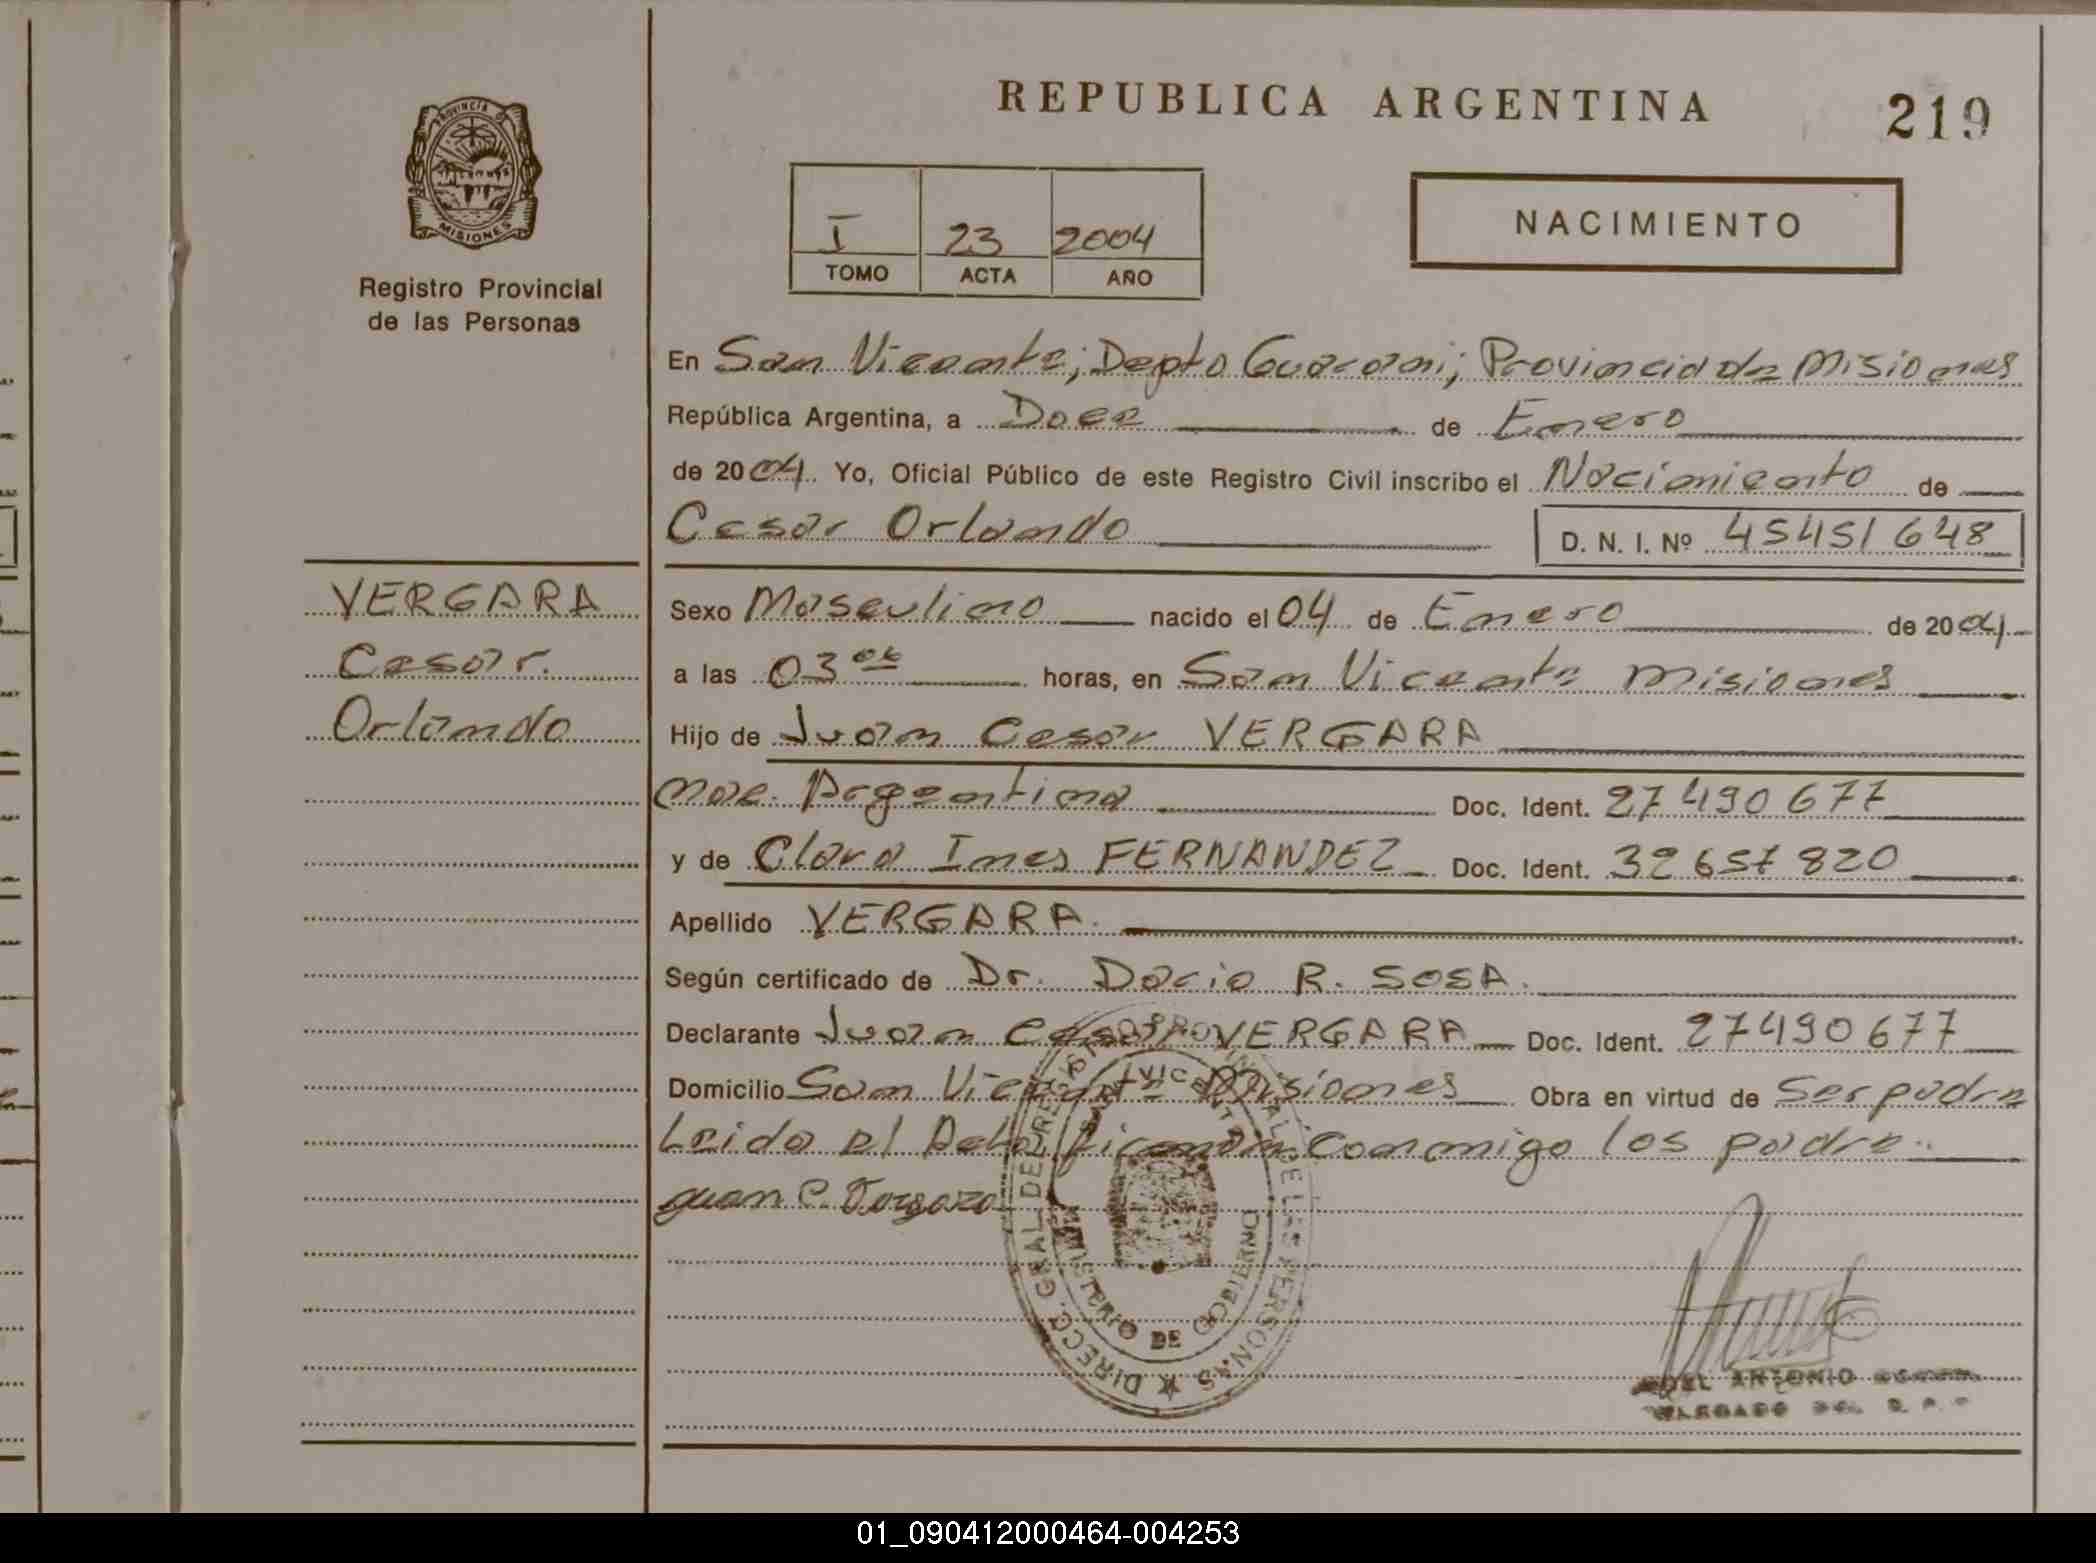 PROVINCIA DE
MISIONES
Registro Provincial
de las Personas
VERGARA
Cesar.
Orlando
REPUBLICA ARGENTINA
219
I 23 2004
TOMO ACTA AÑO
NACIMIENTO
En San Vicente; Depto Guarani; Provincia de Misiones
República Argentina, a Doce de Enero
de 2004. Yo, Oficial Público de este Registro Civil inscribo el Nacimiento de
Cesar Orlando D. N. I. Nº 45451648
Sexo Masculino nacido el 04 de Enero de 2004
a las 03 horas, en San Vicente Misiones
Hijo de Juan Cesar VERGARA
nac. Argentina Doc. Ident. 27490677
y de Clara Ines FERNANDEZ Doc. Ident. 32657820
Apellido VERGARA.
Según certificado de Dr. Dacio R. SOSA.
Declarante Juan Cesar VERGARA Doc. Ident. 27490677
Domicilio San Vicente Misiones Obra en virtud de Ser padre
Leida el Acta, firman conmigo los padre.
Juan C. Vergara
DIRECC. GRAL DE REGISTRO PROVINCIAL DE LAS PERSONAS
SAN VICENTE
MINISTERIO DE GOBIERNO
ANTONIO
DELEGADO DEL R. P.
01_090412000464-004253